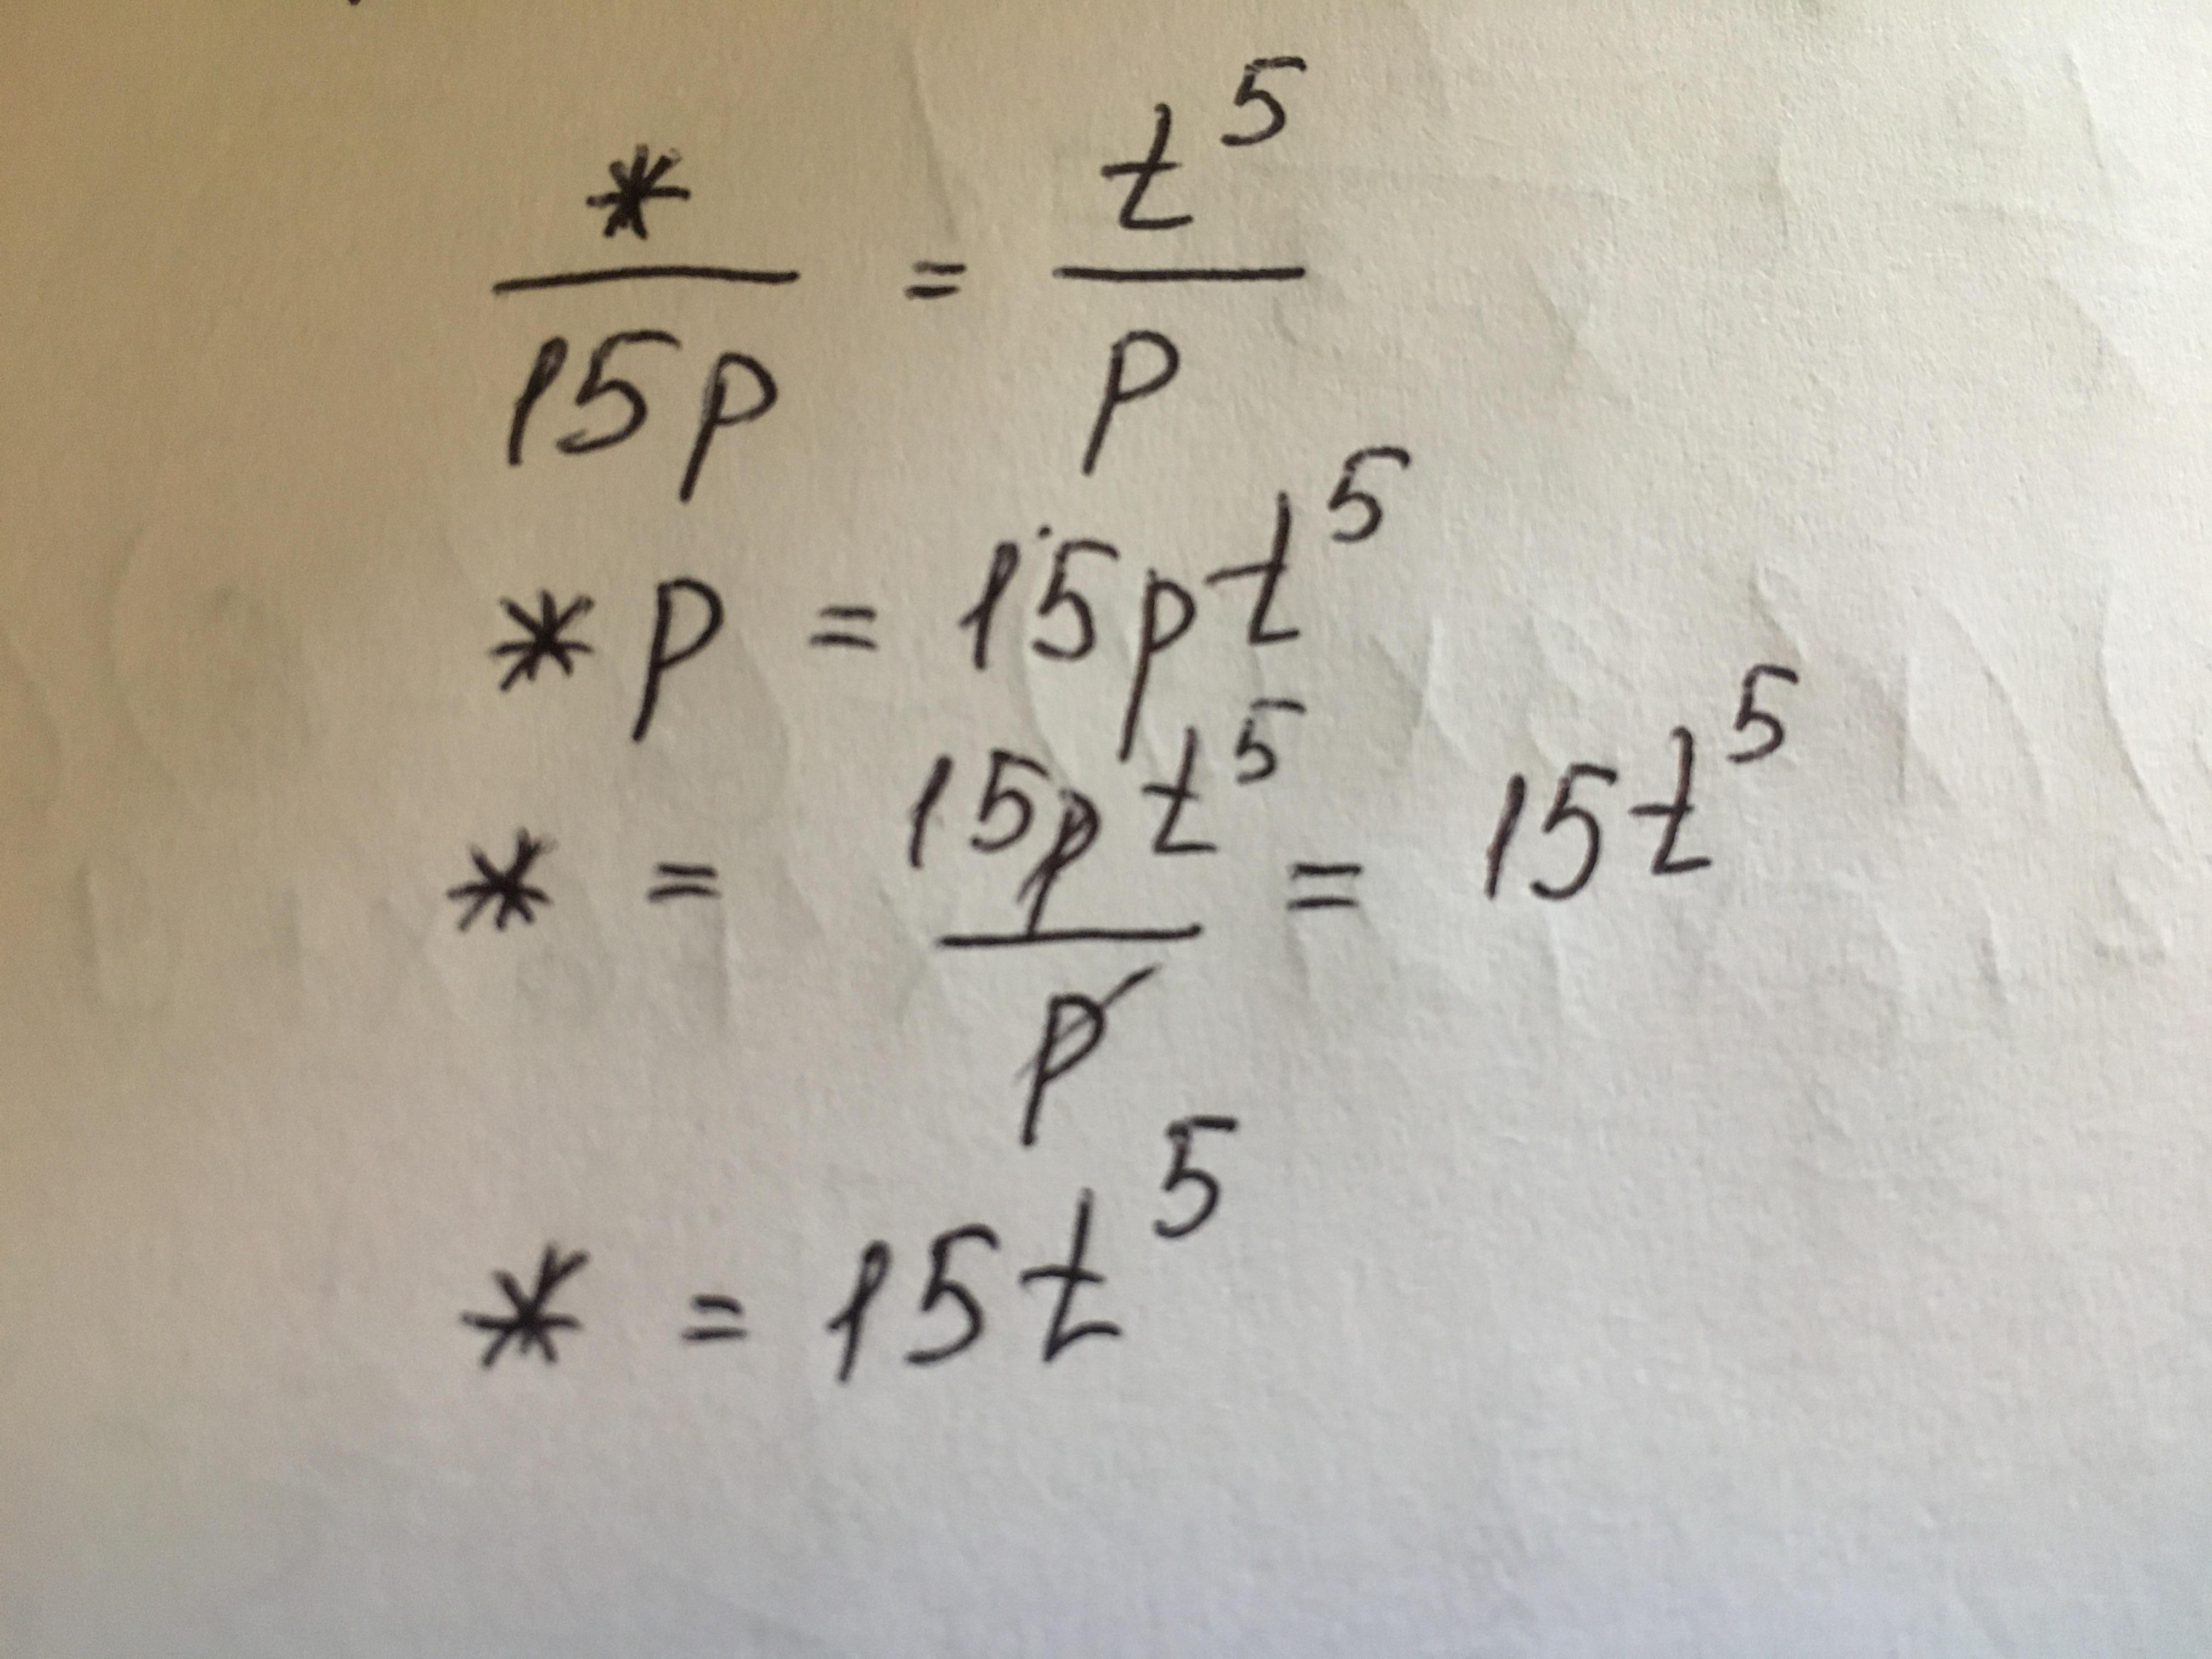 * / 15p = t⁵ / p
*p = 15pt⁵
* = 15pt⁵ / p = 15t⁵
* = 15t⁵